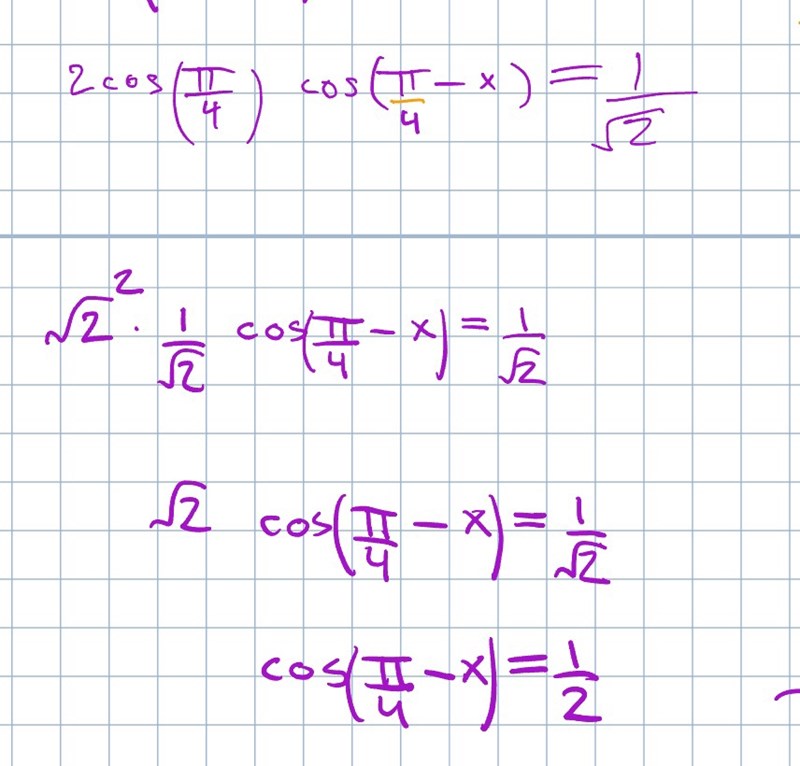 2cos(π/4) cos(π/4 − x) = 1/√2
√2² · 1/√2 cos(π/4 − x) = 1/√2
√2 cos(π/4 − x) = 1/√2
cos(π/4 − x) = 1/2